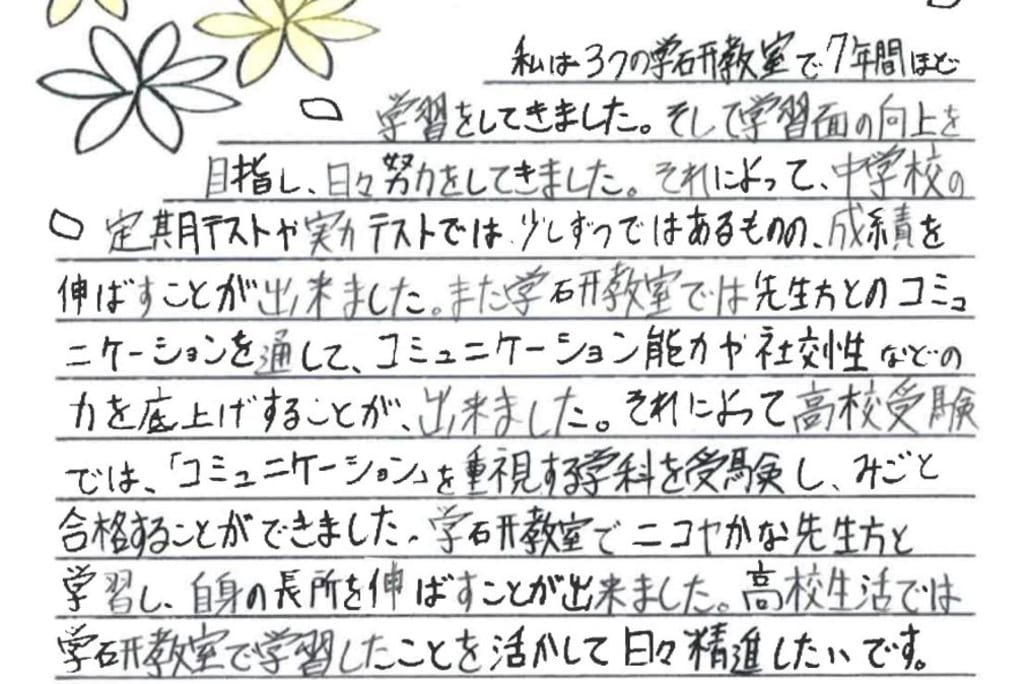 私は3つの学研教室で7年間ほど
学習をしてきました。そして学習面の向上を
目指し、日々努力をしてきました。それによって、中学校の
定期テストや実力テストでは少しずつではあるものの、成績を
伸ばすことが出来ました。また学研教室では先生方とのコミュ
ニケーションを通して、コミュニケーション能力や社交性などの
力を底上げすることが、出来ました。それによって高校受験
では、「コミュニケーション」を重視する学科を受験し、みごと
合格することができました。学研教室でニコヤかな先生方と
学習し、自身の長所を伸ばすことが出来ました。高校生活では
学研教室で学習したことを活かして日々精進したいです。